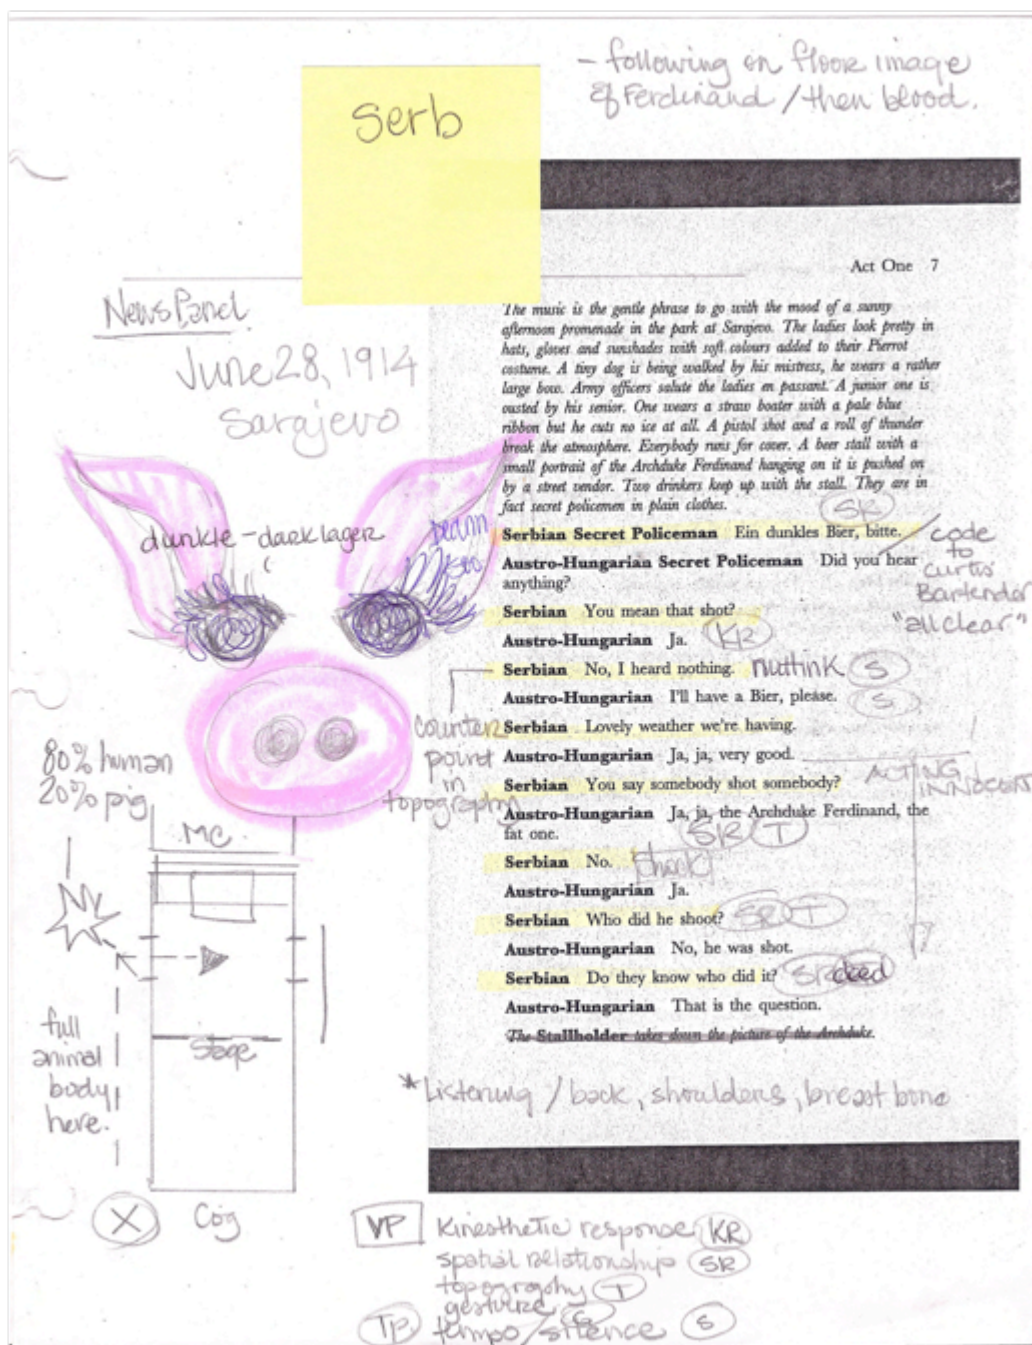 - following on floor image
of Ferdinand / then blood.
Serb
Act One 7
News Panel
June 28, 1914
Sarajevo
The music is the gentle phrase to go with the mood of a sunny
afternoon promenade in the park at Sarajevo. The ladies look pretty in
hats, gloves and sunshades with soft colours added to their Pierrot
costume. A tiny dog is being walked by his mistress, he wears a rather
large bow. Army officers salute the ladies en passant. A junior one is
ousted by his senior. One wears a straw boater with a pale blue
ribbon but he cuts no ice at all. A pistol shot and a roll of thunder
break the atmosphere. Everybody runs for cover. A beer stall with a
small portrait of the Archduke Ferdinand hanging on it is pushed on
by a street vendor. Two drinkers keep up with the stall. They are in
fact secret policemen in plain clothes.
SR
dunkle - dark lager
Serbian Secret Policeman Ein dunkles Bier, bitte.
code
to
Curtis
Bartender
"all clear"
Austro-Hungarian Secret Policeman Did you hear
anything?
Serbian You mean that shot?
Austro-Hungarian Ja. KR
Serbian No, I heard nothing. nuttink S
Austro-Hungarian I'll have a Bier, please. S
counter
point
in
topography
Serbian Lovely weather we're having.
Austro-Hungarian Ja, ja, very good.
ACTING
INNOCENT
Serbian You say somebody shot somebody?
Austro-Hungarian Ja, ja, the Archduke Ferdinand, the
fat one. SR T
Serbian No. shock
Austro-Hungarian Ja.
Serbian Who did he shoot? SR T
Austro-Hungarian No, he was shot.
Serbian Do they know who did it? SR
Austro-Hungarian That is the question.
The Stallholder takes down the picture of the Archduke.
* Listening / back, shoulders, breast bone
80% human
20% pig
MC
Stage
full
animal
body
here.
X
Cog
VP Kinesthetic response KR
spatial relationship SR
topography T
gesture G
TP tempo / silence S